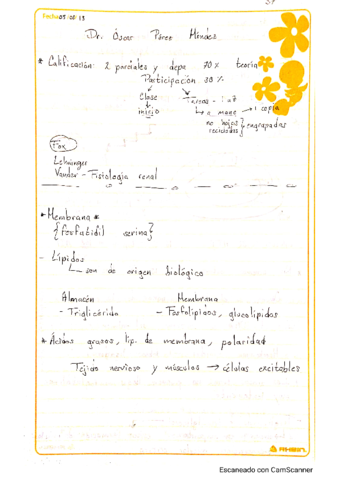 Fecha 05 08 13
Dr. Óscar Pérez Méndez
* Calificación: 2 parciales y depa 70 % teoría
Participación 30 %
Clase
inicio
a mano
1 copia
no hojas
recicladas } engrapadas
Fox
Lehninger
Vander - Fisiología renal
* Membrana *
{fosfatidil serina}
- Lípidos
son de origen biológico
Almacén Membrana
- Triglicérido - Fosfolípidos, glucolípidos
* Ácidos grasos, lip. de membrana, polaridad
Tejido nervioso y músculos → células excitables
Escaneado con CamScanner